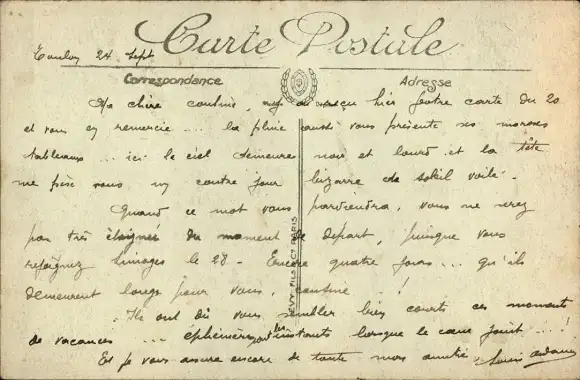 Carte Postale
Toulon 24 Sept
Correspondance
Adresse
Ma chère cousine, reçu hier votre carte du 20
et vous en remercie ... la pluie aussi vous présente ses moroses
tableaux ... ici le ciel demeure noir et lourd et la tête
me pèse sous un contre jour bizarre de soleil voilé.
Quand ce mot vous parviendra, vous ne serez
pas très éloignée du moment de départ, puisque vous
rejoignez Limoges le 28 - Encore quatre jours ... qu'ils
demeurent longs pour vous, cousine !
Ils ont dû vous sembler bien courts ces moments
de vacances ... éphémères sont les instants lorsque le cœur jouit ... !
Et je vous assure encore de toute mon amitié. Louis
LEVY FILS & CIE PARIS